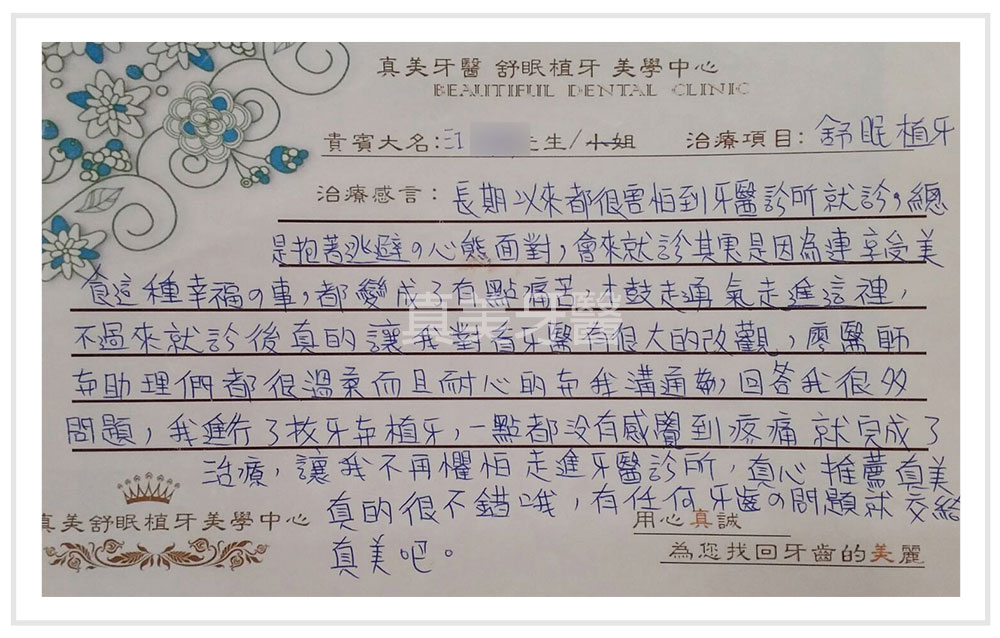 真美牙醫 舒眠植牙 美學中心
BEAUTIFUL DENTAL CLINIC
貴賓大名: 江 先生/小姐 治療項目: 舒眠植牙
治療感言: 長期以來都很害怕到牙醫診所就診,總
是抱著逃避の心態面對,會來就診其實是因為連享受美
食這種幸福の事,都變成了有點痛苦,才鼓起勇氣走進這裡,
不過來就診後真的讓我對看牙醫有很大的改觀,廖醫師
與助理們都很溫柔而且耐心的與我溝通,回答我很多
問題,我進行了拔牙與植牙,一點都沒有感覺到疼痛就完成了
治療,讓我不再懼怕走進牙醫診所,真心推薦真美
真的很不錯哦,有任何牙齒の問題就交給
真美吧。
真美牙醫
真美舒眠植牙美學中心
用心真誠
為您找回牙齒的美麗